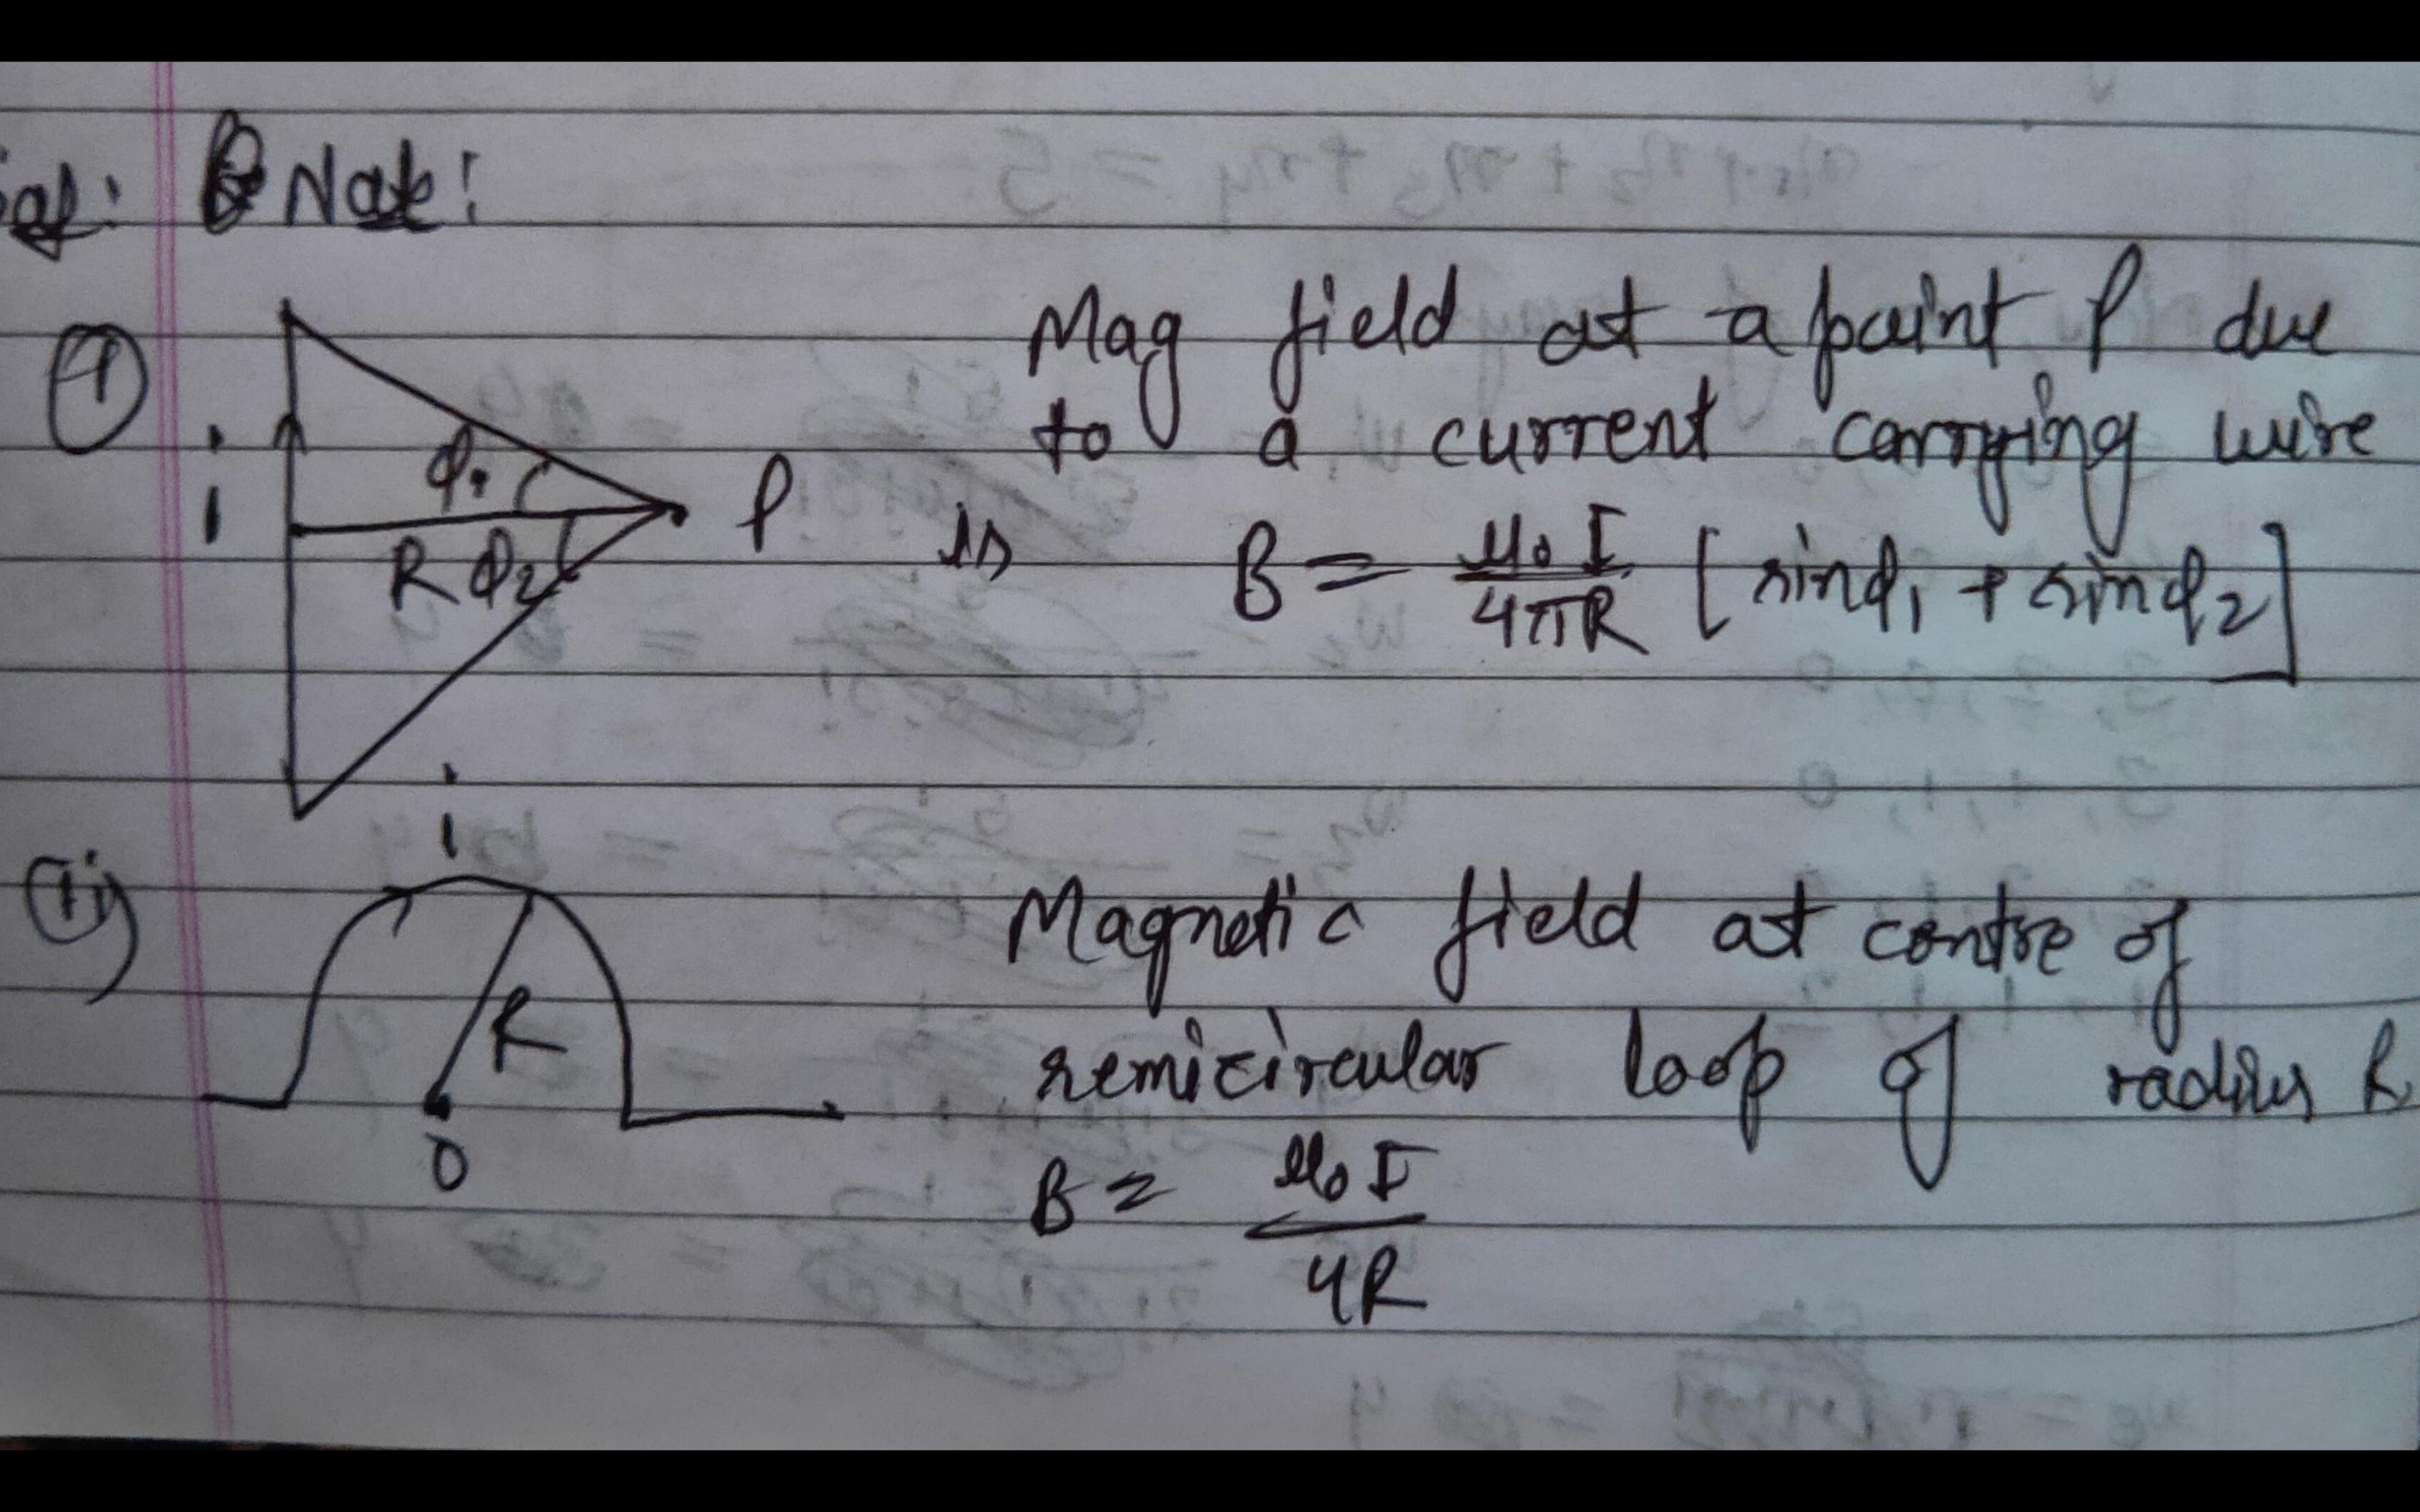 Sol: Note:
(i)
i
ϕ₁
P
R ϕ₂
Mag field at a point P due
to a current carrying wire
is B = μ₀ I / 4πR [sinϕ₁ + sinϕ₂]
(ii)
i
R
O
Magnetic field at centre of
semicircular loop of radius R
B = μ₀ I / 4R